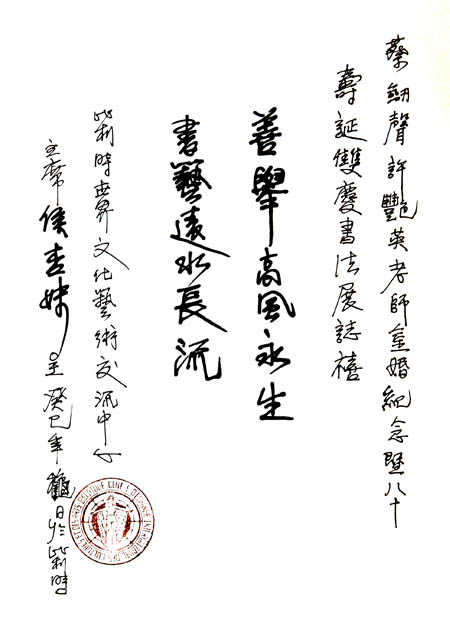 蔡劍聲許艷英老師金婚紀念暨八十
壽誕雙慶書法展誌禧
善舉高風永生
書藝遠水長流
比利時世界文化藝術交流中心
主席侯杏妹呈癸巳年龝日於比利時